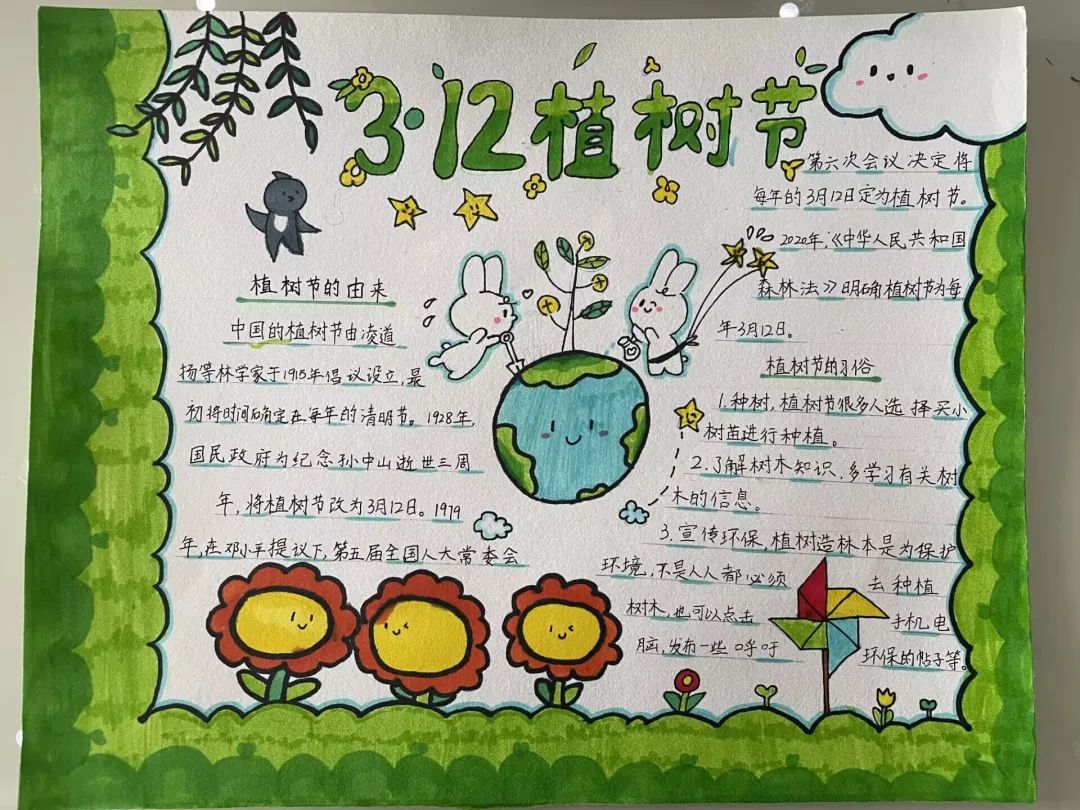 3·12植树节
植树节的由来
中国的植树节由凌道
扬等林学家于1915年倡议设立，最
初将时间确定在每年的清明节。1928年，
国民政府为纪念孙中山逝世三周
年，将植树节改为3月12日。1979
年，在邓小平提议下，第五届全国人大常委会
第六次会议决定将
每年的3月12日定为植树节。
2020年，《中华人民共和国
森林法》明确植树节为每
年3月12日。
植树节的习俗
1.种树，植树节很多人选择买小
树苗进行种植。
2.了解树木知识，多学习有关树
木的信息。
3.宣传环保，植树造林本是为保护
环境，不是人人都必须 去种植
树木，也可以点击 手机，电
脑，发布一些呼吁 环保的帖子等。